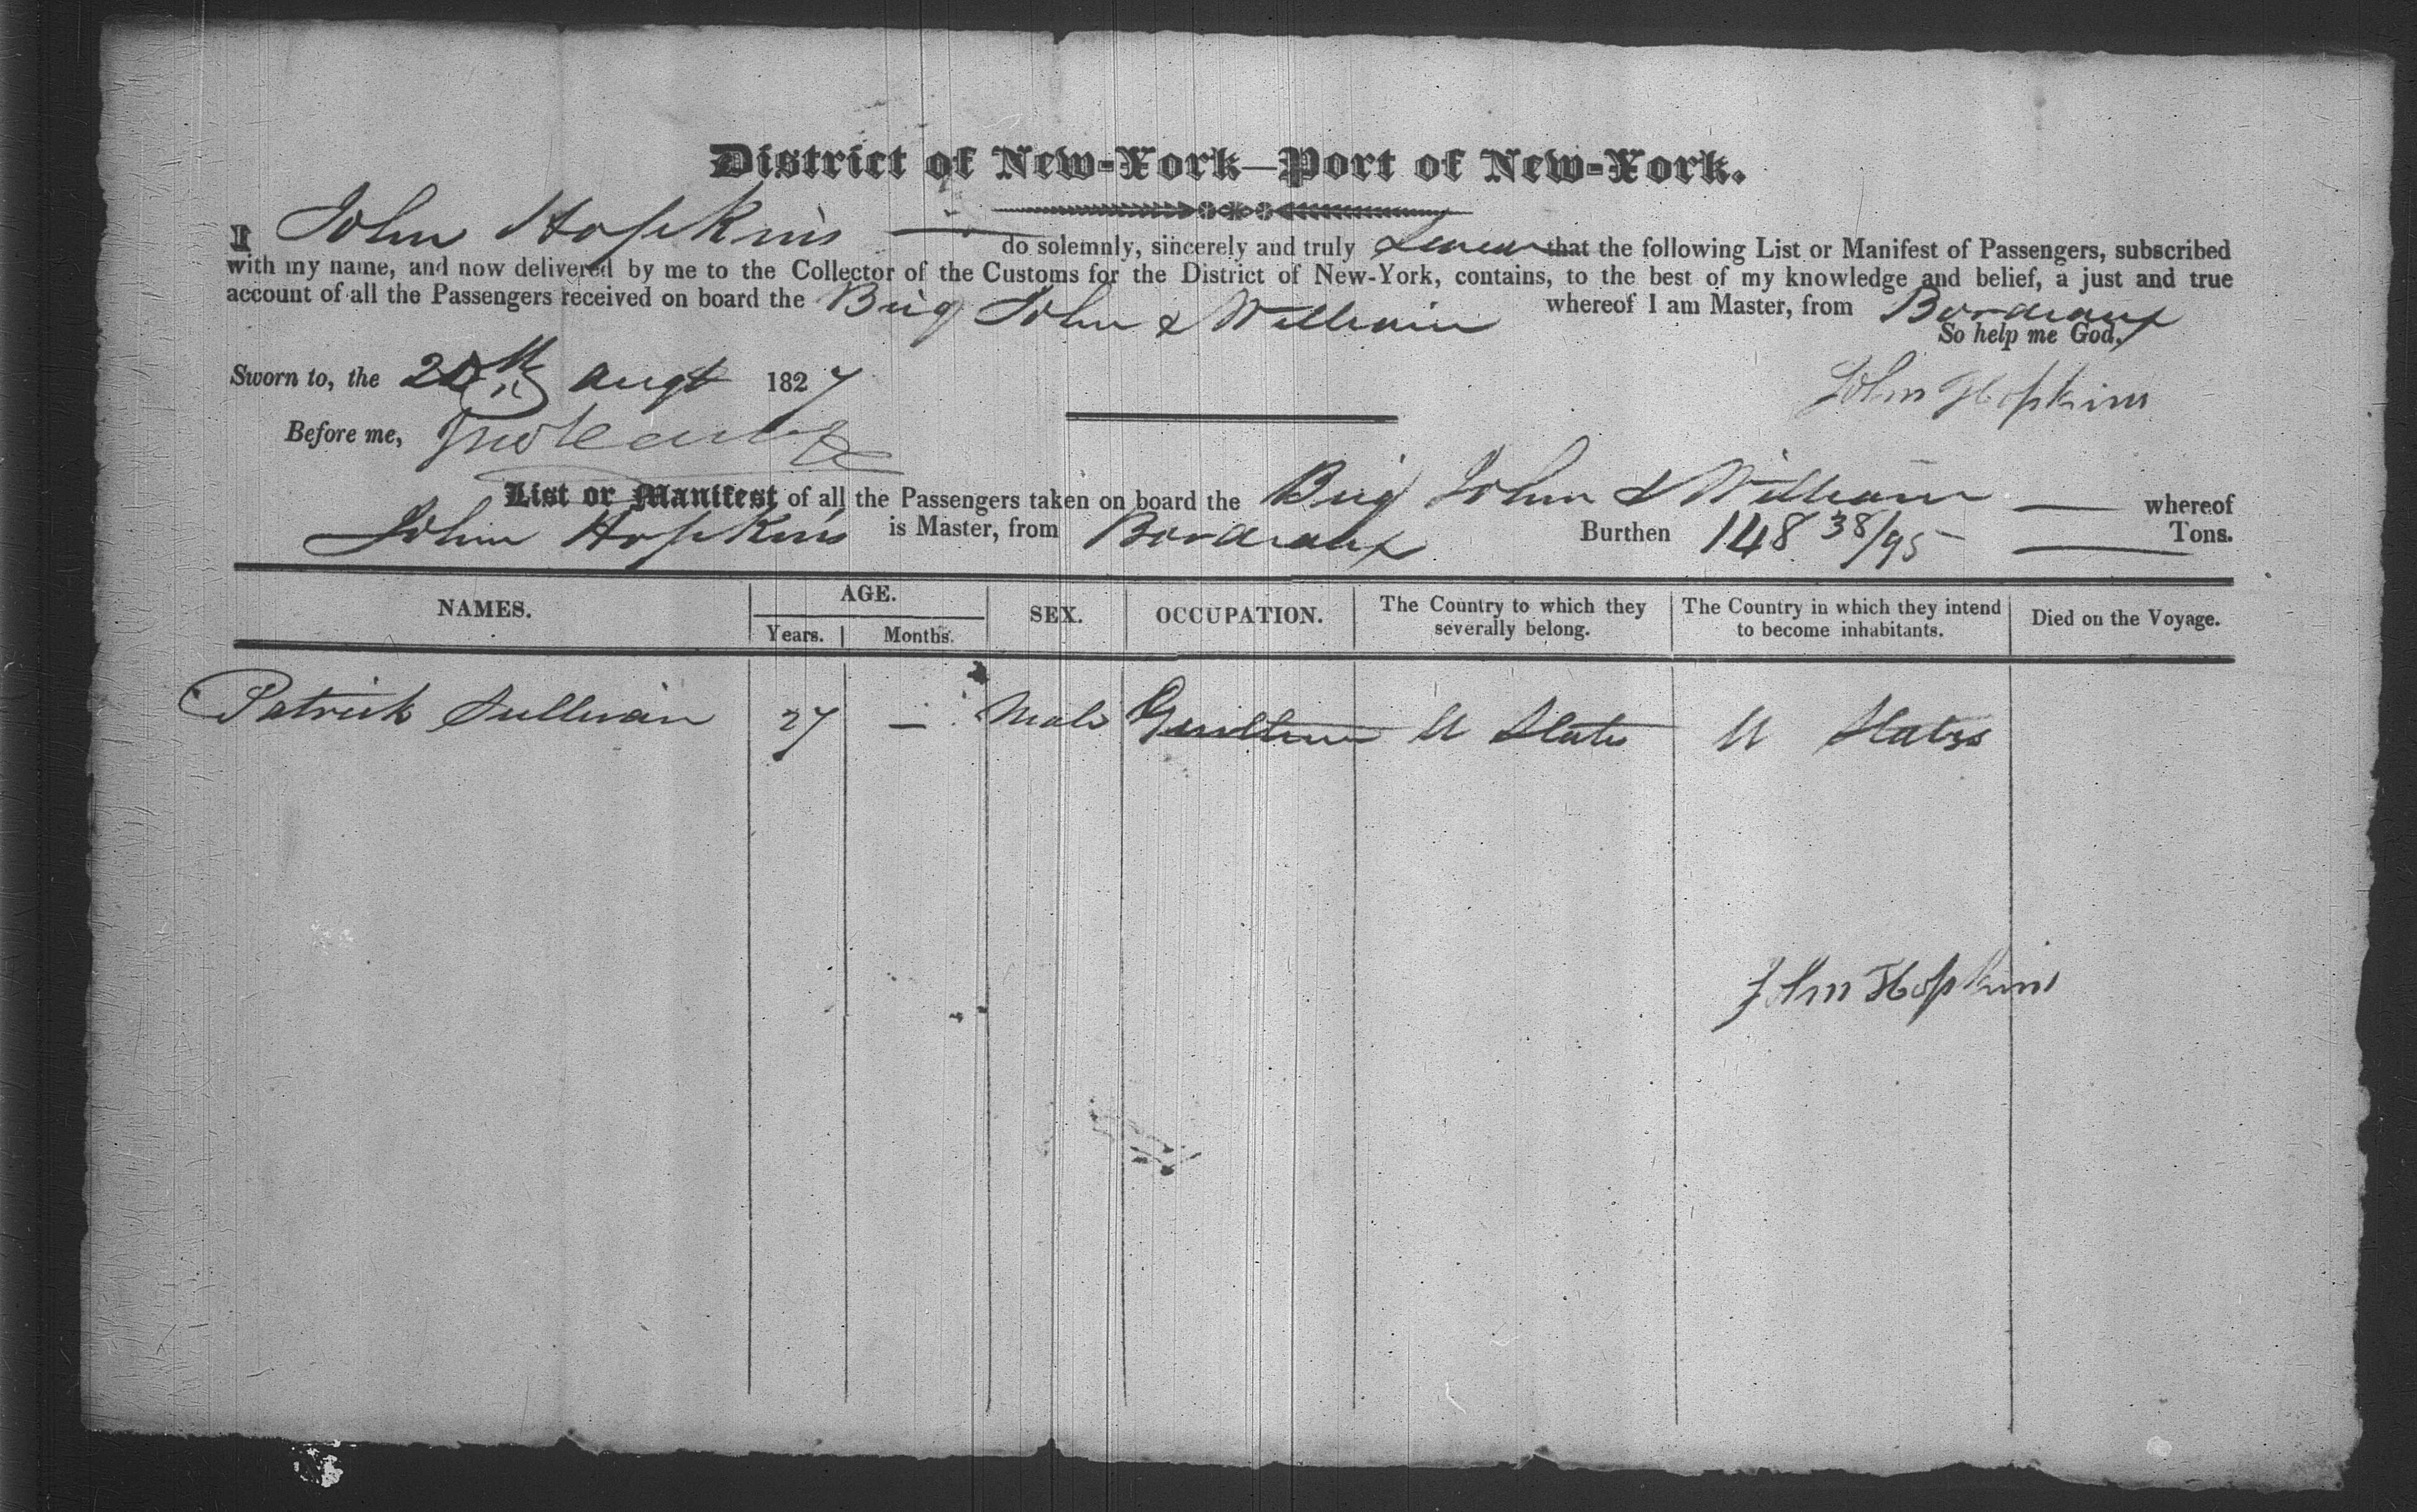 District of New-York—Port of New-York.
I John Hopkins — do solemnly, sincerely and truly Swear that the following List or Manifest of Passengers, subscribed
with my name, and now delivered by me to the Collector of the Customs for the District of New-York, contains, to the best of my knowledge and belief, a just and true
account of all the Passengers received on board the Brig John & William whereof I am Master, from Bordeaux
So help me God.
Sworn to, the 20th augt 1827
John Hopkins
Before me,
List or Manifest of all the Passengers taken on board the Brig John & William — whereof
John Hopkins is Master, from Bordeaux Burthen 148 38/95 — Tons.
NAMES. AGE. Years. Months. SEX. OCCUPATION. The Country to which they severally belong. The Country in which they intend to become inhabitants. Died on the Voyage.
Patrick Sullivan 27 — Male Gentleman U States U States
John Hopkins